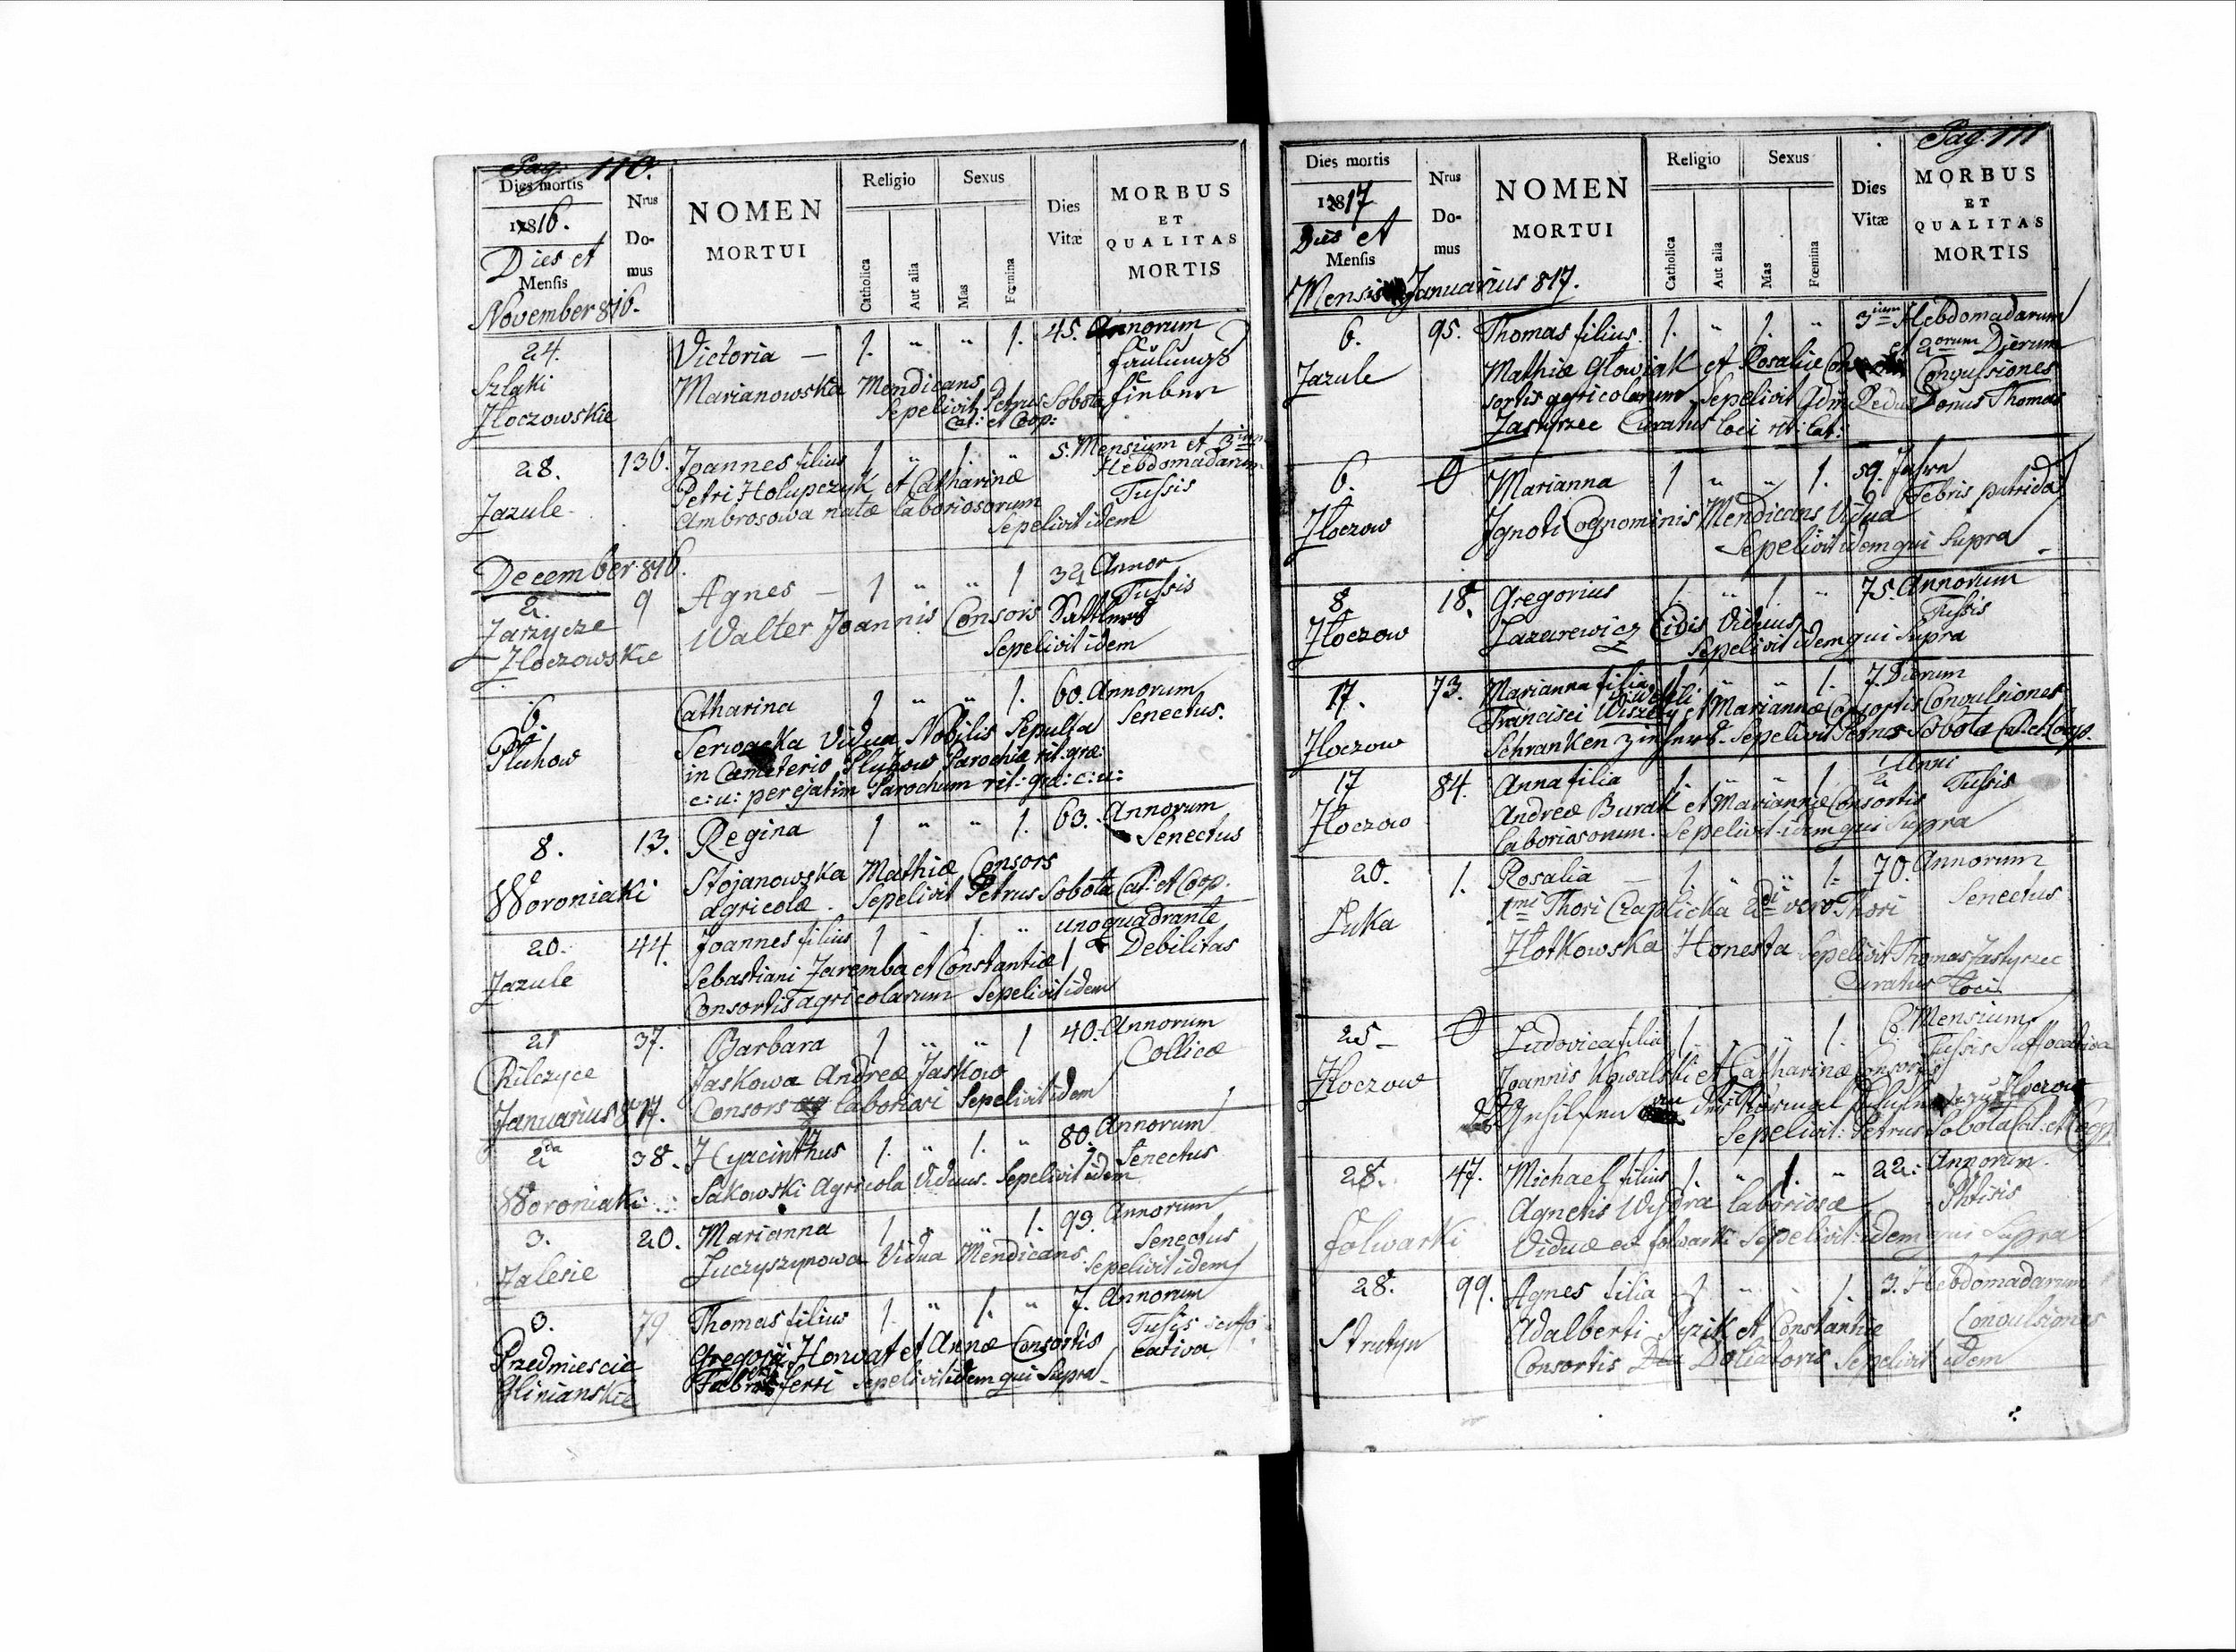 Pag. 110.
Dies mortis
1816.
Dies et
Mensis
November 816.
Nrus
Do-
mus
NOMEN
MORTUI
Religio
Catholica
Aut alia
Sexus
Mas
Fœmina
Dies
Vitæ
MORBUS
ET
QUALITAS
MORTIS
24. Victoria — 1. " " 1. 45. Annorum
Szlaki Marianowska Mendicans faulungs
Złoczowskie Sepelivit Petrus Sobota fieber
Cat: et Coop:
28. 130. Joannes filius 1 " 1 " 5. Mensium et 3ium
Petri Holupczyk et Catharinæ Hebdomadarum
Zazule Ambrosowa natæ laboriosorum Tussis
Sepelivit idem
December 816.
2. 9 Agnes — 1 " " 1 32 Annor
Zarzycze Walter Joannis Consors Sattlers Tussis
Złoczowskie Sepelivit idem
6. Catharina 1 " " 1. 60. Annorum
Pluhow Vidua Nobilis Sepulta Senectus.
in Cœmeterio Pluhow Parochiæ rit: græ:
c: u: per ejatim Parochum rit: gra: c: u:
8. 13. Regina 1 " " 1. 63. Annorum
Woroniaki Stojanowska Mathiæ Consors Senectus
agricolæ. Sepelivit Petrus Sobota Cat: et Coop.
20. 44. Joannes filius 1 " 1. " uno quadrante
Zazule Sebastiani Zaremba et Constantiæ Debilitas
Consortis agricolarum Sepelivit idem
21 37. Barbara 1 " " 1 40. Annorum
Chilczyce Jaskowa Andreæ Jaskow Collicæ
Januarius 817. Consors laboriosi Sepelivit idem
2da 38. Hyacinthus 1. " 1. " 80. Annorum
Woroniaki Sakowski Agricola Viduus. Sepelivit idem Senectus
3. 20. Marianna 1 " " 1. 93. Annorum
Zalesie Luczyszynowa Vidua Mendicans Senectus
Sepelivit idem
3. 79 Thomas filius 1. " 1. " 7. Annorum
Przedmiescie Gregorii Horwat et Annæ Consortis Tussis suffo
Glinianskie ferri Sepelivit idem qui Supra cativa
Pag. 111
Dies mortis
1817
Dies et
Mensis
Mensis Januarius 817.
Nrus
Do-
mus
NOMEN
MORTUI
Religio
Catholica
Aut alia
Sexus
Mas
Fœmina
Dies
Vitæ
MORBUS
ET
QUALITAS
MORTIS
6. 95. Thomas filius 1. " 1. " 3ium Hebdomadarum
et 2orum Dierum
Zazule Mathiæ Głowiak et Rosaliæ Con Convulsiones
sortis agricolarum, Sepelivit Adm Redus Donus Thomas
Zastyrzec Curatus Loci rit: lat:
6. 0 Marianna 1 " " 1. 59. Jahre
Febris putrida
Złoczow Ignoti Cognominis Mendicans Vidua
Sepelivit idem qui Supra
8. 18. Gregorius 1. " 1 " 75. Annorum
Złoczow Lazarewicz Civis Viduus Tussis
Sepelivit idem qui Supra
17. 73. Marianna filia 1. 7. Dierum
Francisci et Mariannæ Consortis Convulsiones
Złoczow Sepelivit Petrus Sobota Cat. et Coop.
17 84. Anna filia 1. " " 1 1/2 Anni
Złoczow Andreæ Burak et Mariannæ Consortis Tussis
laboriosorum. Sepelivit idem qui Supra
20. 1. Rosalia — 1. " " 1. 70. Annorum
Luka 1mi Thori Czaplicka 2di vero Thori Senectus
Złotkowska Honesta Sepelivit Thomas Zastyrzec
Curatus Loci
25 0 Ludovica filia 1. " " 1. 6. Mensium
Tussis Suffocativa
Złoczow Joannis Kowalski et Catharinæ Consortis
Gehilfen Złoczow
Sepelivit: Petrus Sobota Cat. et Coop.
28. 47. Michael filius 1. " 1. " 22. Annorum.
Agnetis Wydra laboriosæ Phtisis
Folwarki Viduæ ex folwarki Sepelivit idem qui Supra
28. 99. Agnes filia 1 " " 1. 3. Hebdomadarum
Strutyn Adalberti et Constantiæ Convulsiones
Consortis Doliatoris Sepelivit idem